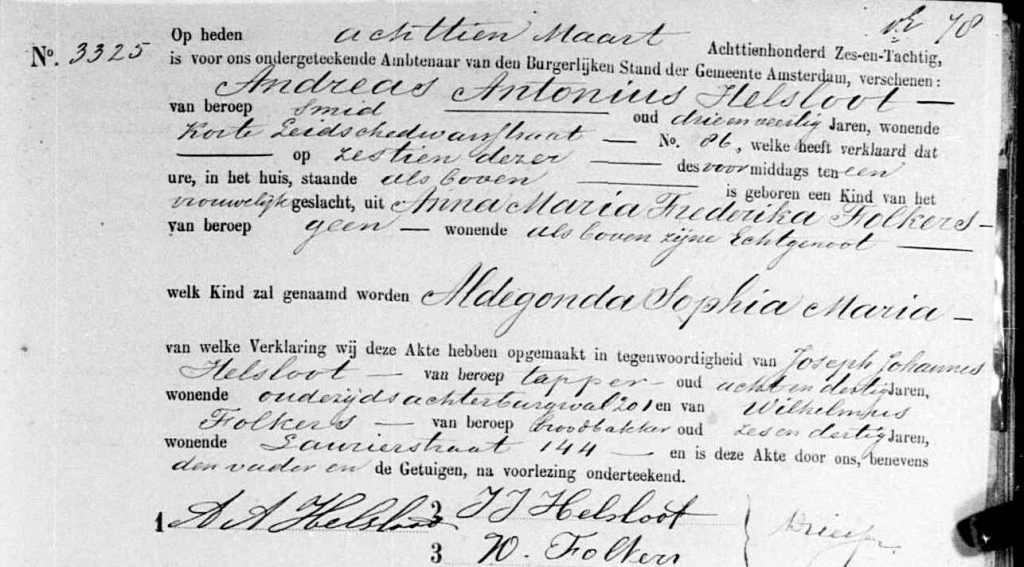 78
No. 3325 Op heden achttien Maart Achttienhonderd Zes-en-Tachtig,
is voor ons ondergeteekende Ambtenaar van den Burgerlijken Stand der Gemeente Amsterdam, verschenen:
Andreas Antonius Helsloot —
van beroep smid — oud drie en veertig Jaren, wonende
Korte Leidschedwarsstraat — No. 86, welke heeft verklaard dat
— op zestien dezer — des voormiddags ten een
ure, in het huis, staande als boven — is geboren een Kind van het
vrouwelijk geslacht, uit Anna Maria Frederika Folkers —
van beroep geen — wonende als boven zijne Echtgenoot —
welk Kind zal genaamd worden Aldegonda Sophia Maria —
van welke Verklaring wij deze Akte hebben opgemaakt in tegenwoordigheid van Joseph Johannes
Helsloot — van beroep tapper — oud acht en dertig Jaren,
wonende oudezijdsachterburgwal 201 en van Wilhelmus
Folkers — van beroep broodbakker oud zes en dertig Jaren,
wonende Laurierstraat 144 — en is deze Akte door ons, benevens
den vader en de Getuigen, na voorlezing onderteekend.
1 A A Helsloot 2 J J Helsloot
3 W. Folkers